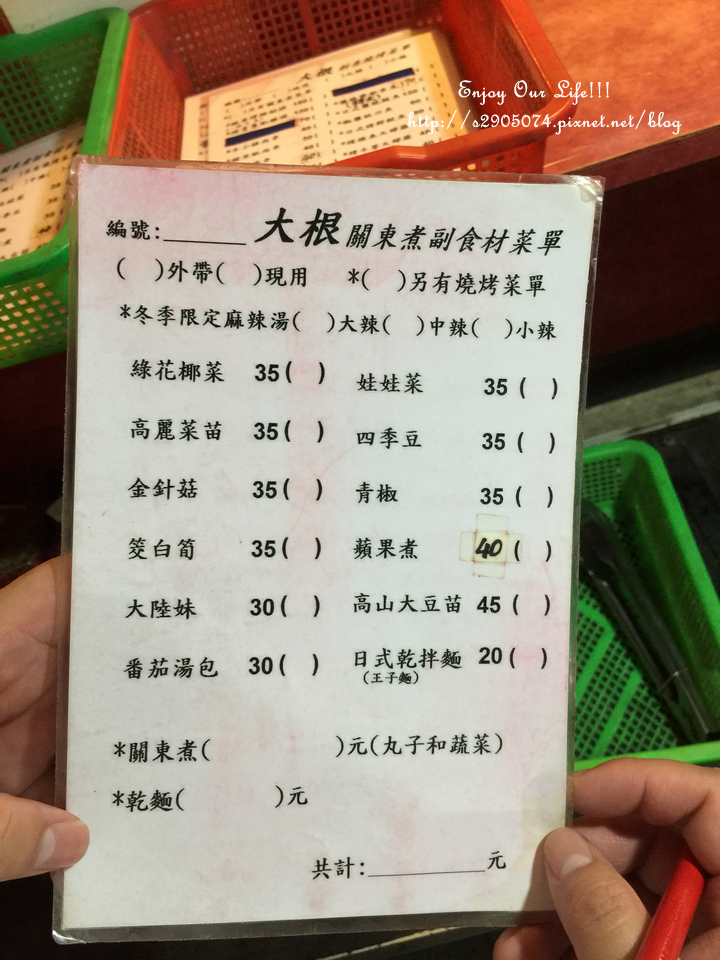 Enjoy Our Life!!!
http://s2905074.pixnet.net/blog
編號:______ 大根關東煮副食材菜單
(  )外帶(  )現用 *(  )另有燒烤菜單
*冬季限定麻辣湯(  )大辣(  )中辣(  )小辣
綠花椰菜 35(  ) 娃娃菜 35 (  )
高麗菜苗 35(  ) 四季豆 35 (  )
金針菇 35(  ) 青椒 35 (  )
筊白筍 35(  ) 蘋果煮 40 (  )
大陸妹 30(  ) 高山大豆苗 45 (  )
番茄湯包 30(  ) 日式乾拌麵 20 (  )
(王子麵)
*關東煮(          )元(丸子和蔬菜)
*乾麵(       )元
共計:__________元